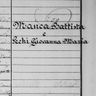 Manca Battista
e
Sechi Giovanna Maria